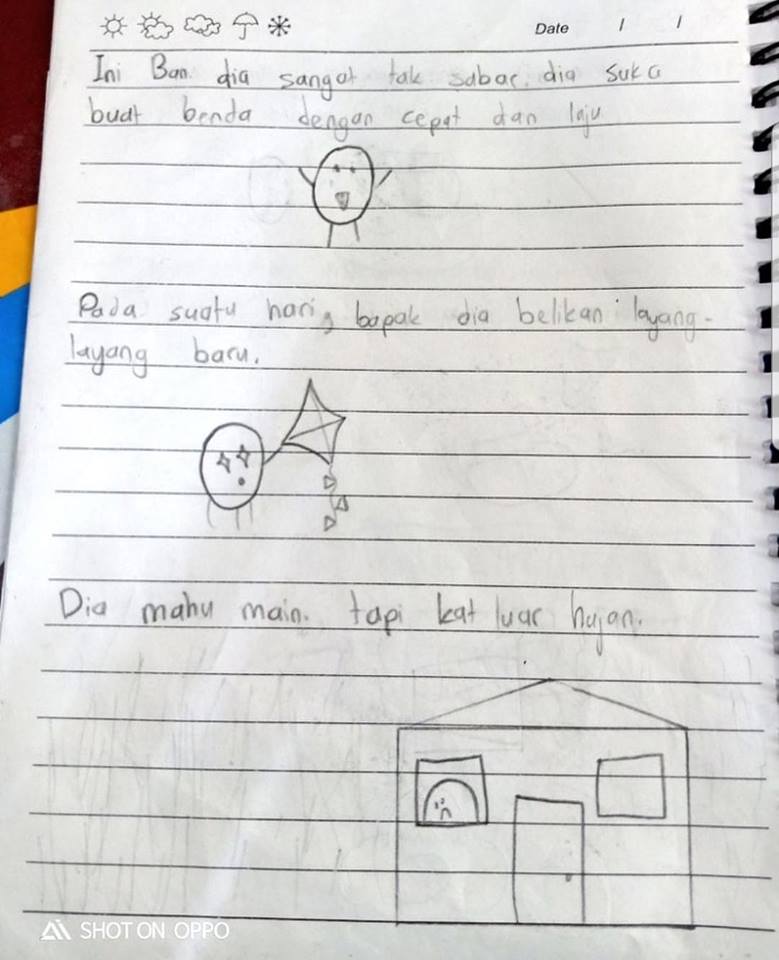 Date / /
Ini Ban. dia sangat tak sabar. dia suka
buat benda dengan cepat dan laju
Pada suatu hari, bapak dia belikan layang-
layang baru.
Dia mahu main. tapi kat luar hujan.
SHOT ON OPPO